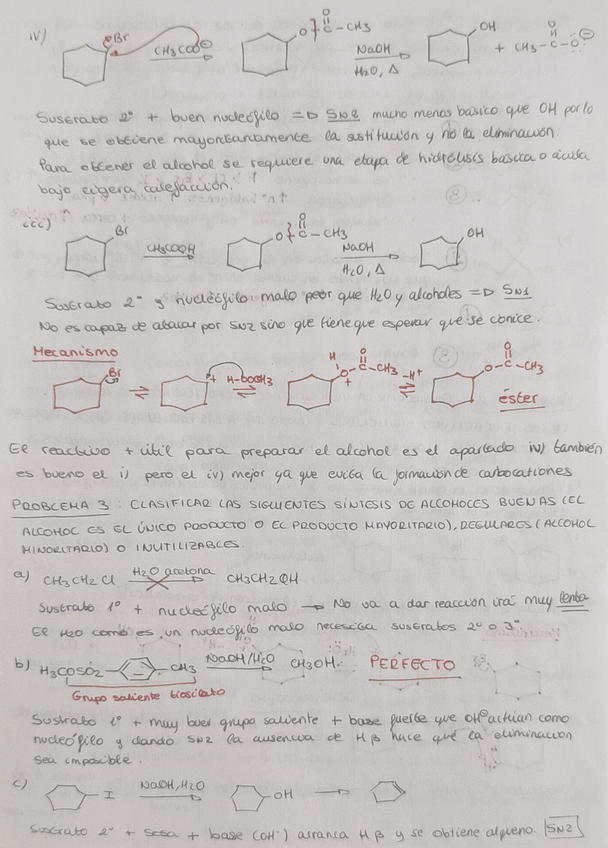 iv) Br CH3COO⊖ O } C – CH3 O NaOH H2O, Δ OH + CH3 – C – O⊖ O
Sustrato 2º + buen nucleófilo => SN2 mucho menos básico que OH por lo
que se obtiene mayoritariamente la sustitución y no la eliminación.
Para obtener el alcohol se requiere una etapa de hidrólisis básica o ácida
bajo ligera calefacción.
iii) Br CH3COOH O } C – CH3 O NaOH H2O, Δ OH
Sustrato 2º y nucleófilo malo peor que H2O y alcoholes => SN1
No es capaz de atacar por SN2 sino que tiene que esperar que se ionice.
Mecanismo
Br + H O – C – CH3 O + –H+ O – C – CH3 O
éster
El reactivo + útil para preparar el alcohol es el apartado iv) también
es bueno el i) pero el iv) mejor ya que evita la formación de carbocationes
PROBLEMA 3: CLASIFICAR LAS SIGUIENTES SÍNTESIS DE ALCOHOLES BUENAS (EL
ALCOHOL ES EL ÚNICO PRODUCTO O EL PRODUCTO MAYORITARIO), REGULARES (ALCOHOL
MINORITARIO) O INUTILIZABLES.
a) CH3CH2Cl H2O acetona CH3CH2OH
Sustrato 1º + nucleófilo malo → No va a dar reacción irá muy lenta
El H2O como es un nucleófilo malo necesita sustratos 2º o 3º.
b) H3COSO2 – – CH3 NaOH/H2O CH3OH. PERFECTO
Grupo saliente
Sustrato 1º + muy buen grupo saliente + base fuerte que OH⊖ actúan como
nucleófilo y dando SN2 la ausencia de H β hace que la eliminación
sea imposible.
c) I NaOH, H2O OH →
Sustrato 2º + + base (OH-) arranca H β y se obtiene alqueno. SN2